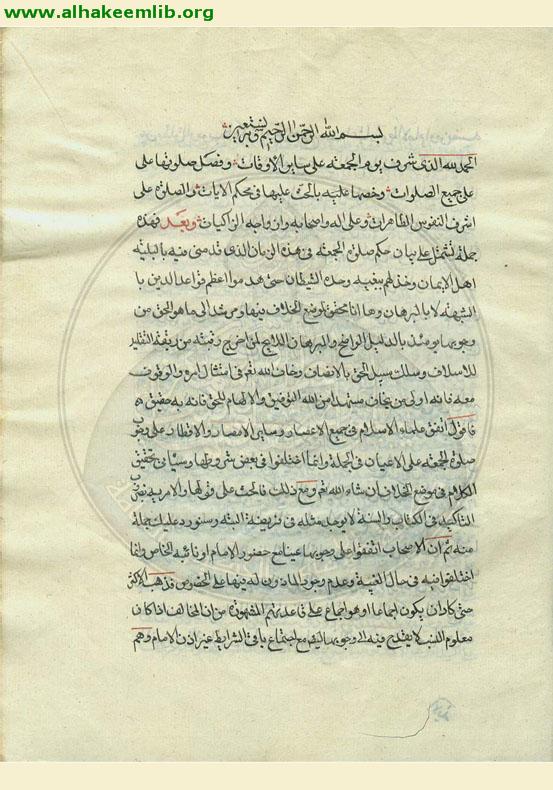 www.alhakeemlib.org
بسم الله الرحمن الرحيم وبه نستعين
الحمد لله الذى شرف يوم الجمعة على ساير الاوقات وفضل صلوتها على
على جميع الصلوات وخصها عليه بالحث عليها فى محكم الايات والصلوة على
اشرف النفوس الطاهرات وعلى اله واصحابه وازواجه الزاكيات وبعد فهذه
جملة تشتمل على بيان حكم صلوة الجمعة فى هذه الزمان الذى قد منى فيه بالبلية
اهل الايمان وخذلهم ببغيه وحده الشيطان حتى هدموا اعظم قواعد الدين با
الشبهة لا بالبرهان وها انا محقق لوضع الخلاف فيها ومرشد الى ما هو الحق من
وجوبها يومئذ بالدليل الواضح والبرهان اللايح لمن اخرج رقبته من ربقة التقليد
للاسلاف وسلك سبيل الحق بالانصاف وخاف الله تعم فى امتثال امره والوقوف
معه فانه اولى من يخاف مستمدا من الله التوفيق والالهام للحق فانه به حقيق
فاقول اتفق علماء الاسلام فى جميع الاعصار وساير الامصار والاقطار على وجوب
صلوة الجمعة على الاعيان فى الجملة وانما اختلفوا فى بعض شروطها وسياتى تحقيق
الكلام فى موضع الخلاف ان شاء الله تعم ومع ذلك فالحث على فعلها والامر به بفنون
التاكيد فى الكتاب والسنة لا يوجد مثله فى فريضة البتة وسنورد عليك جملة
منه ثم ان الاصحاب اتفقوا على وجوبها عينا مع حضور الامام او نائبه الخاص وانما
اختلفوا فيه فى حال الغيبة وعدم وجود الماذون له فيها على الخصوص فذهب الاكثر
حتى كاد ان يكون اجماعا او هو اجماع على قاعدتهم المشهورة من ان المخالف اذا كان
معلوم النسب لا يقدح فيه الى وجوبها ايضا مع اجتماع باقى الشرايط غير اذن الامام وهم